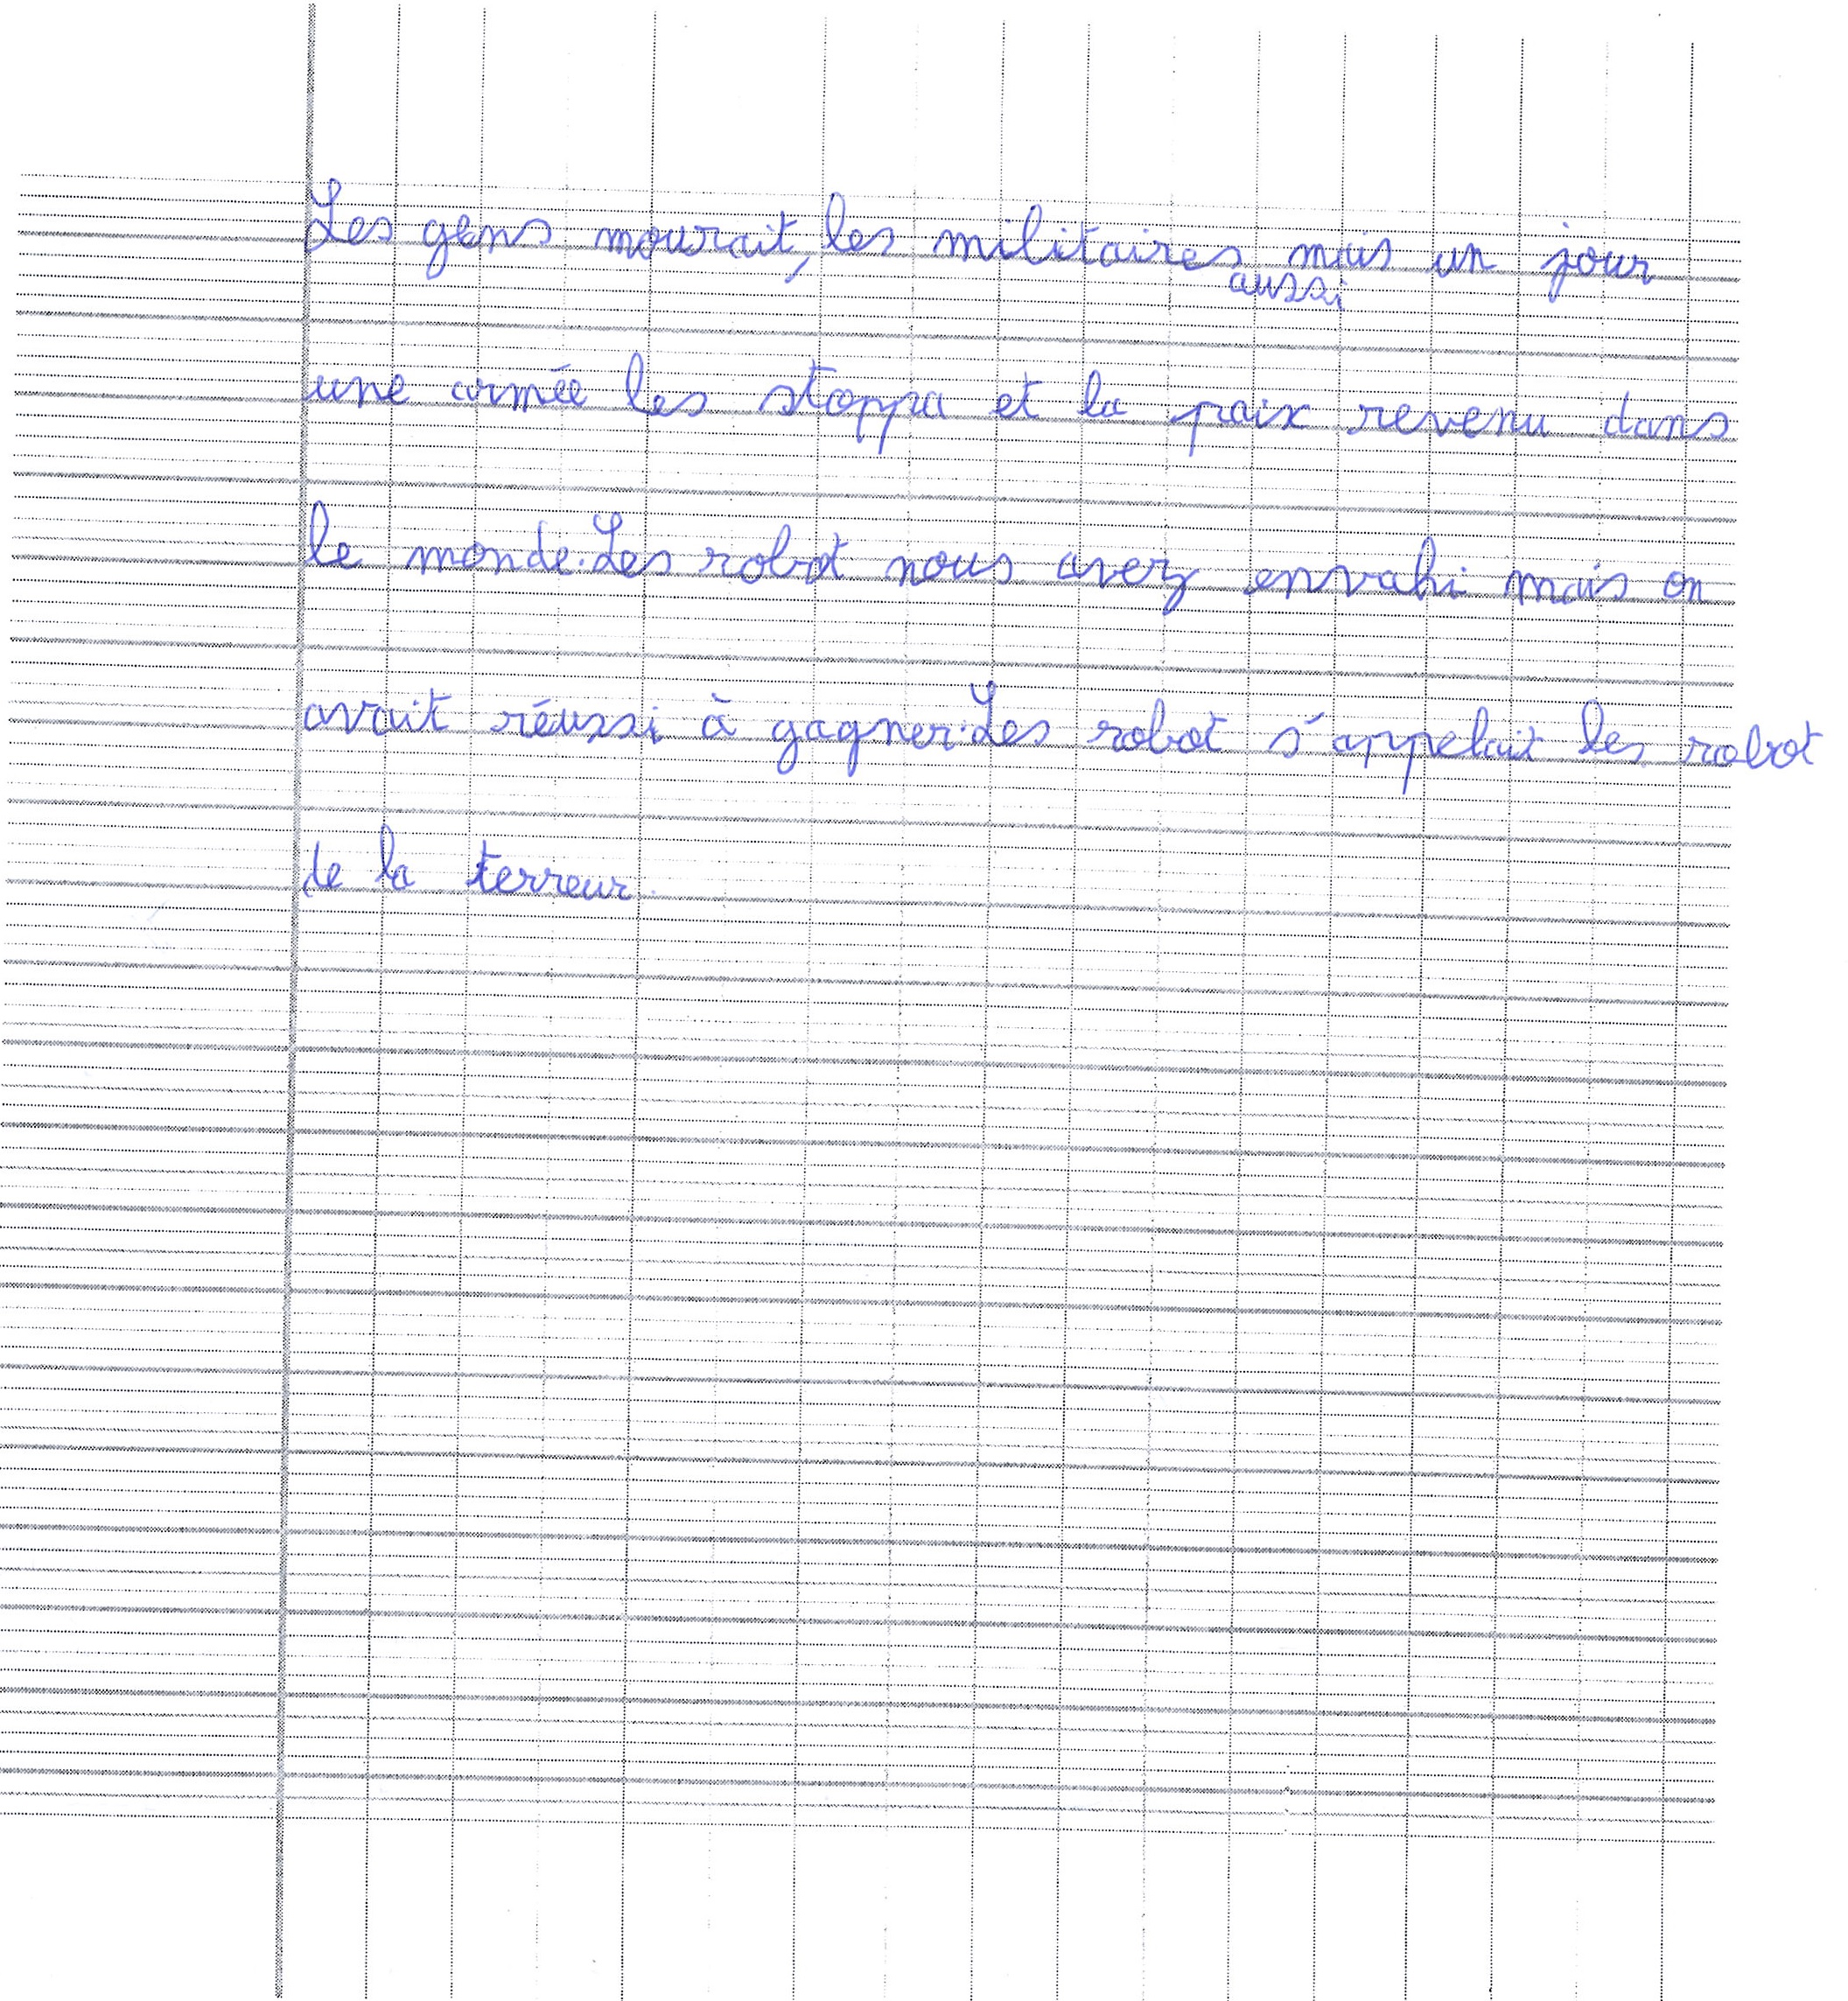 Les gens mourait, les militaires aussi mais un jour
une armée les stoppa et la paix revenu dans
le monde. Les robot nous avez envahi mais on
avait réussi à gagner. Les robot s'appelait les robot
de la terreur.